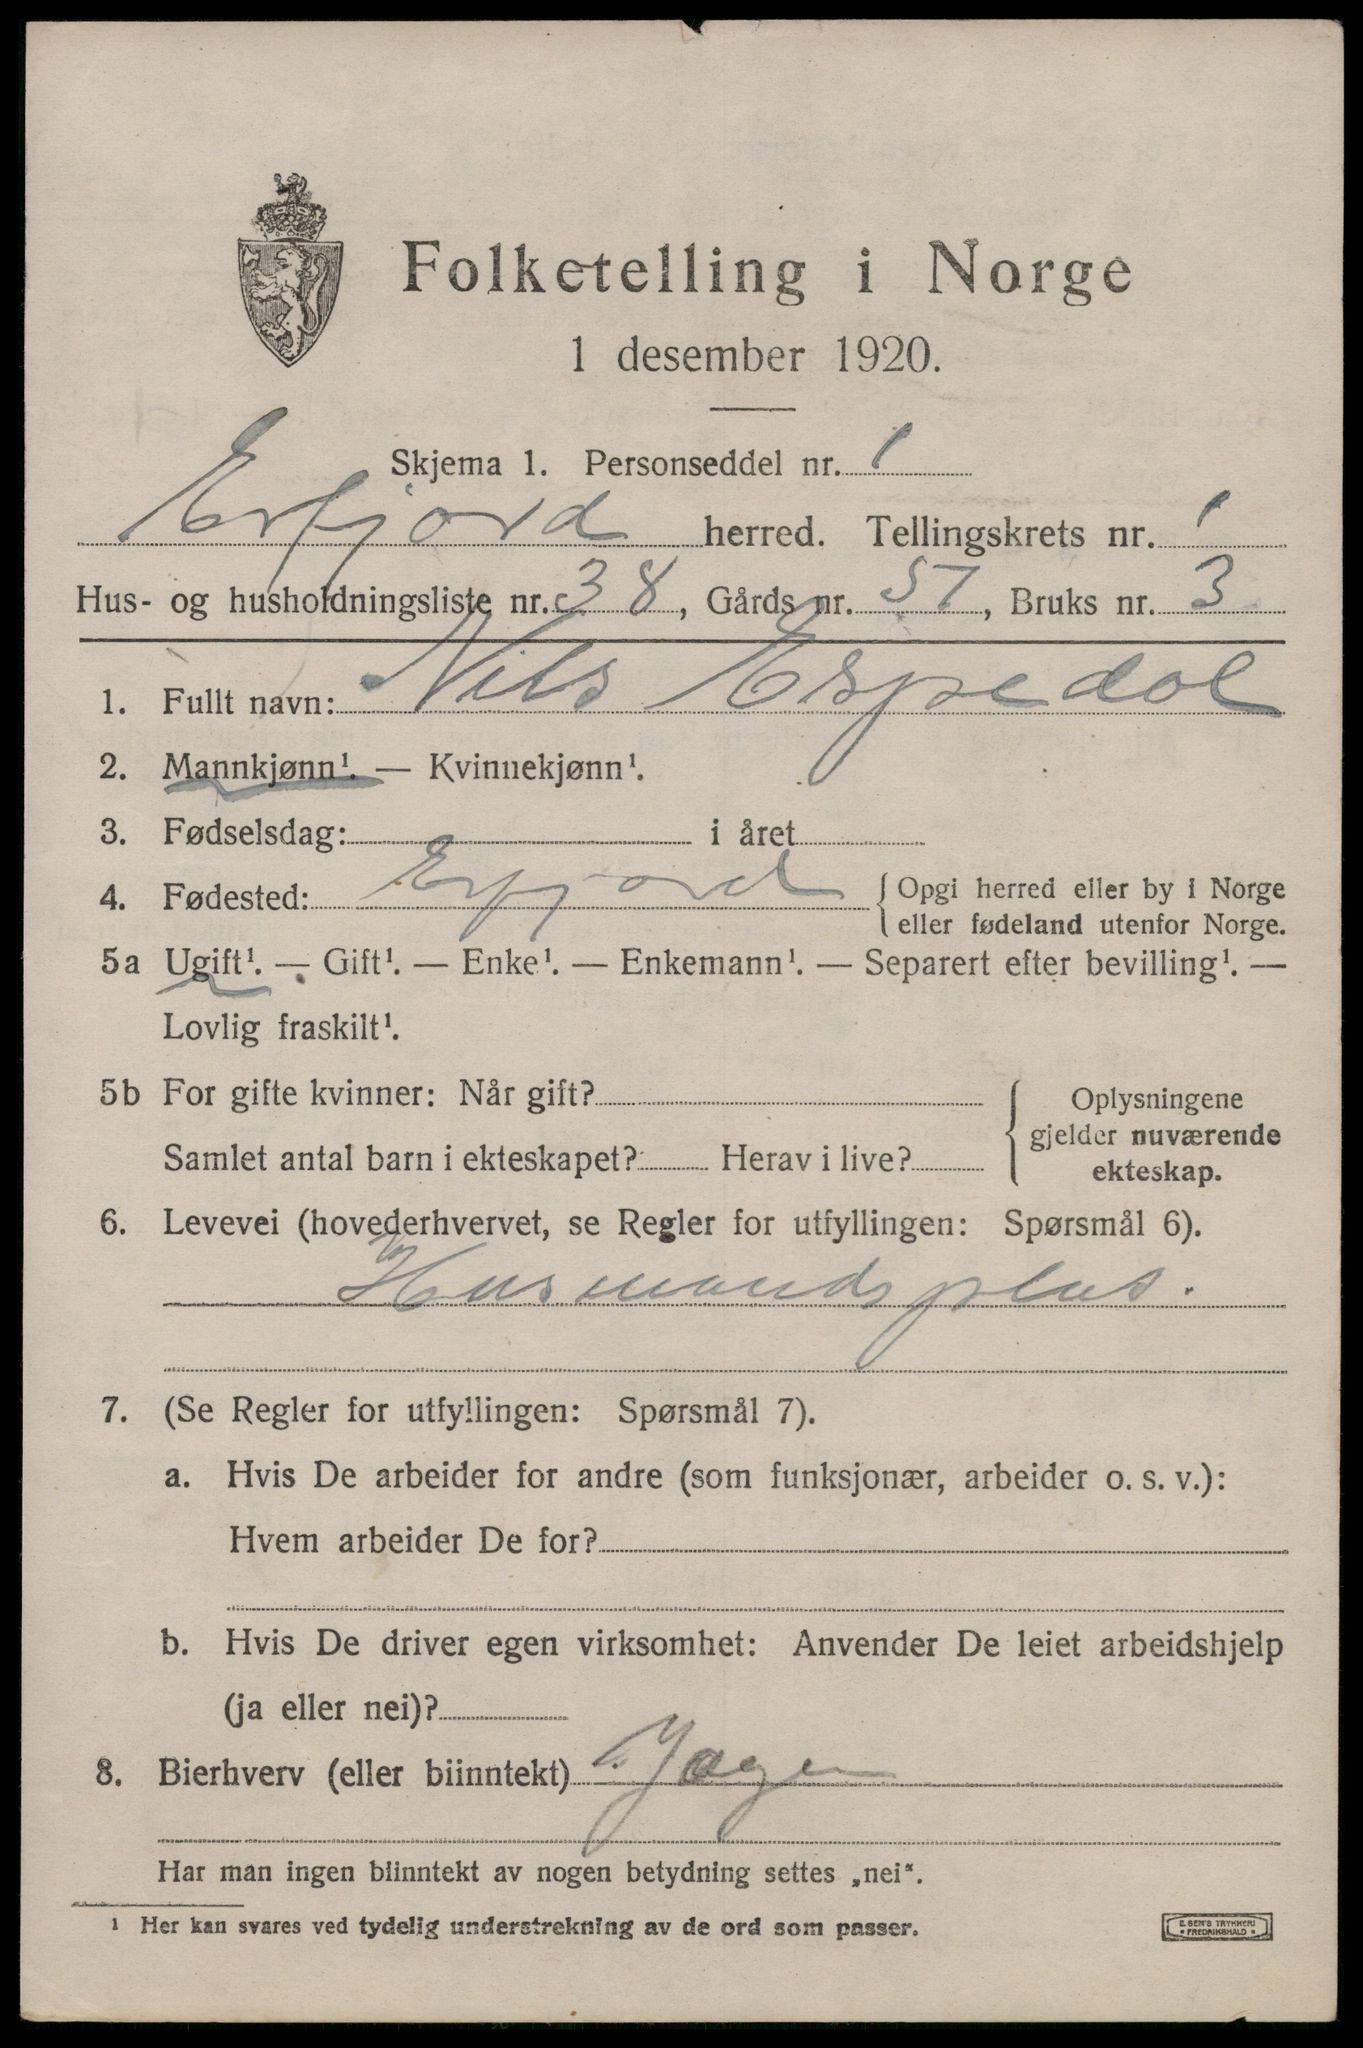 Folketelling i Norge
1 desember 1920.
Skjema 1. Personseddel nr. 1
Erfjord herred. Tellingskrets nr. 1
Hus- og husholdningsliste nr. 38, Gårds nr. 57, Bruks nr. 3
1. Fullt navn: Nils Espedal
2. Mannkjønn¹. — Kvinnekjønn¹.
3. Fødselsdag: i året
4. Fødested: Erfjord { Opgi herred eller by i Norge
eller fødeland utenfor Norge.
5a Ugift¹. — Gift¹. — Enke¹. — Enkemann¹. — Separert efter bevilling¹. —
Lovlig fraskilt¹.
5b For gifte kvinner: Når gift? { Oplysningene
gjelder nuværende
Samlet antal barn i ekteskapet? Herav i live?
ekteskap.
6. Levevei (hovederhvervet, se Regler for utfyllingen: Spørsmål 6).
Husmandsplas.
7. (Se Regler for utfyllingen: Spørsmål 7).
a. Hvis De arbeider for andre (som funksjonær, arbeider o. s. v.):
Hvem arbeider De for?
b. Hvis De driver egen virksomhet: Anvender De leiet arbeidshjelp
(ja eller nei)?
8. Bierhverv (eller biinntekt)
Har man ingen biinntekt av nogen betydning settes „nei“.
¹ Her kan svares ved tydelig understrekning av de ord som passer.
E. SEM'S TRYKKERI
FREDRIKSHALD